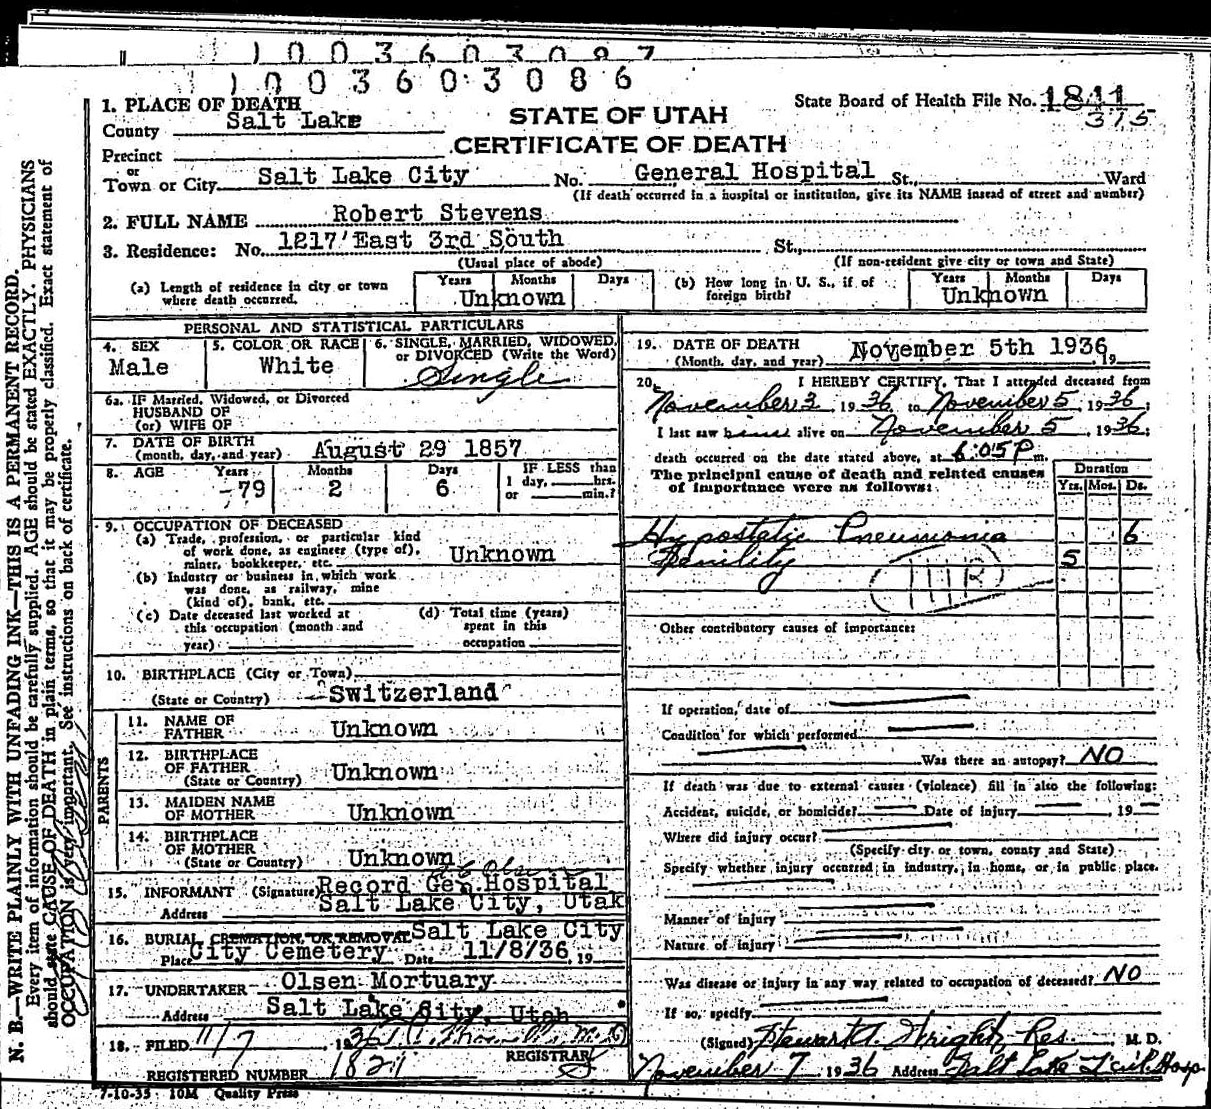 1003603087
1003603086
1. PLACE OF DEATH
County Salt Lake
STATE OF UTAH
CERTIFICATE OF DEATH
State Board of Health File No. 1841
375
Precinct
or
Town or City Salt Lake City No. General Hospital St., Ward
(If death occurred in a hospital or institution, give its NAME insead of street and number)
2. FULL NAME Robert Stevens
3. Residence: No. 1217 East 3rd South St.,
(Usual place of abode) (If non-resident give city or town and State)
(a) Length of residence in city or town where death occurred. Years Months Days Unknown
(b) How long in U. S., if of foreign birth? Years Months Days Unknown
PERSONAL AND STATISTICAL PARTICULARS
4. SEX Male
5. COLOR OR RACE White
6. SINGLE, MARRIED, WIDOWED, or DIVORCED (Write the Word) Single
6a. IF Married, Widowed, or Divorced
HUSBAND OF
(or) WIFE OF
7. DATE OF BIRTH
(month, day, and year) August 29 1857
8. AGE Years 79 Months 2 Days 6
IF LESS than
1 day, hrs.
or min.?
9. OCCUPATION OF DECEASED
(a) Trade, profession, or particular kind
of work done, as engineer (type of),
miner, bookkeeper, etc. Unknown
(b) Industry or business in which work
was done, as railway, mine
(kind of), bank, etc.
(c) Date deceased last worked at
this occupation (month and
year)
(d) Total time (years)
spent in this
occupation
10. BIRTHPLACE (City or Town)
(State or Country) Switzerland
PARENTS
11. NAME OF
FATHER Unknown
12. BIRTHPLACE
OF FATHER
(State or Country) Unknown
13. MAIDEN NAME
OF MOTHER Unknown
14. BIRTHPLACE
OF MOTHER
(State or Country) Unknown
15. INFORMANT (Signature) Record Gen. Hospital
Address Salt Lake City, Utah
16. BURIAL, CREMATION, OR REMOVAL Salt Lake City
Place City Cemetery Date 11/8/36, 19
17. UNDERTAKER Olsen Mortuary
Address Salt Lake City, Utah
18. FILED 11/7, 1936 M.D.
REGISTRAR
REGISTERED NUMBER 1821
7-10-35 10M Quality Press
19. DATE OF DEATH
(Month, day, and year) November 5th 1936, 19
20. I HEREBY CERTIFY, That I attended deceased from
November 3, 1936 to November 5, 1936;
I last saw him alive on November 5, 1936;
death occurred on the date stated above, at 6:05 P m.
The principal cause of death and related causes
of importance were as follows:
Duration
Yrs. Mos. Ds.
Hypostatic Pneumonia 6
Senility 5
Other contributory causes of importance:
If operation, date of
Condition for which performed
Was there an autopsy? NO
If death was due to external causes (violence) fill in also the following:
Accident, suicide, or homicide? Date of injury, 19
Where did injury occur?
(Specify city or town, county and State)
Specify whether injury occurred in industry, in home, or in public place.
Manner of injury
Nature of injury
Was disease or injury in any way related to occupation of deceased? NO
If so, specify
(Signed) Wright, Res. M. D.
November 7 1936 Address Salt Lake Hosp.
N. B.—WRITE PLAINLY WITH UNFADING INK—THIS IS A PERMANENT RECORD.
Every item of information should be carefully supplied. AGE should be stated EXACTLY. PHYSICIANS
should state CAUSE OF DEATH in plain terms, so that it may be properly classified. Exact statement of
OCCUPATION is very important. See instructions on back of certificate.